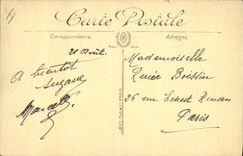 Carte Postale
Correspondance
Adresse
21 Août.
A bientôt
Suzanne
Marcelle
Mademoiselle
Boissin
26 rue Ernest Renan
Paris